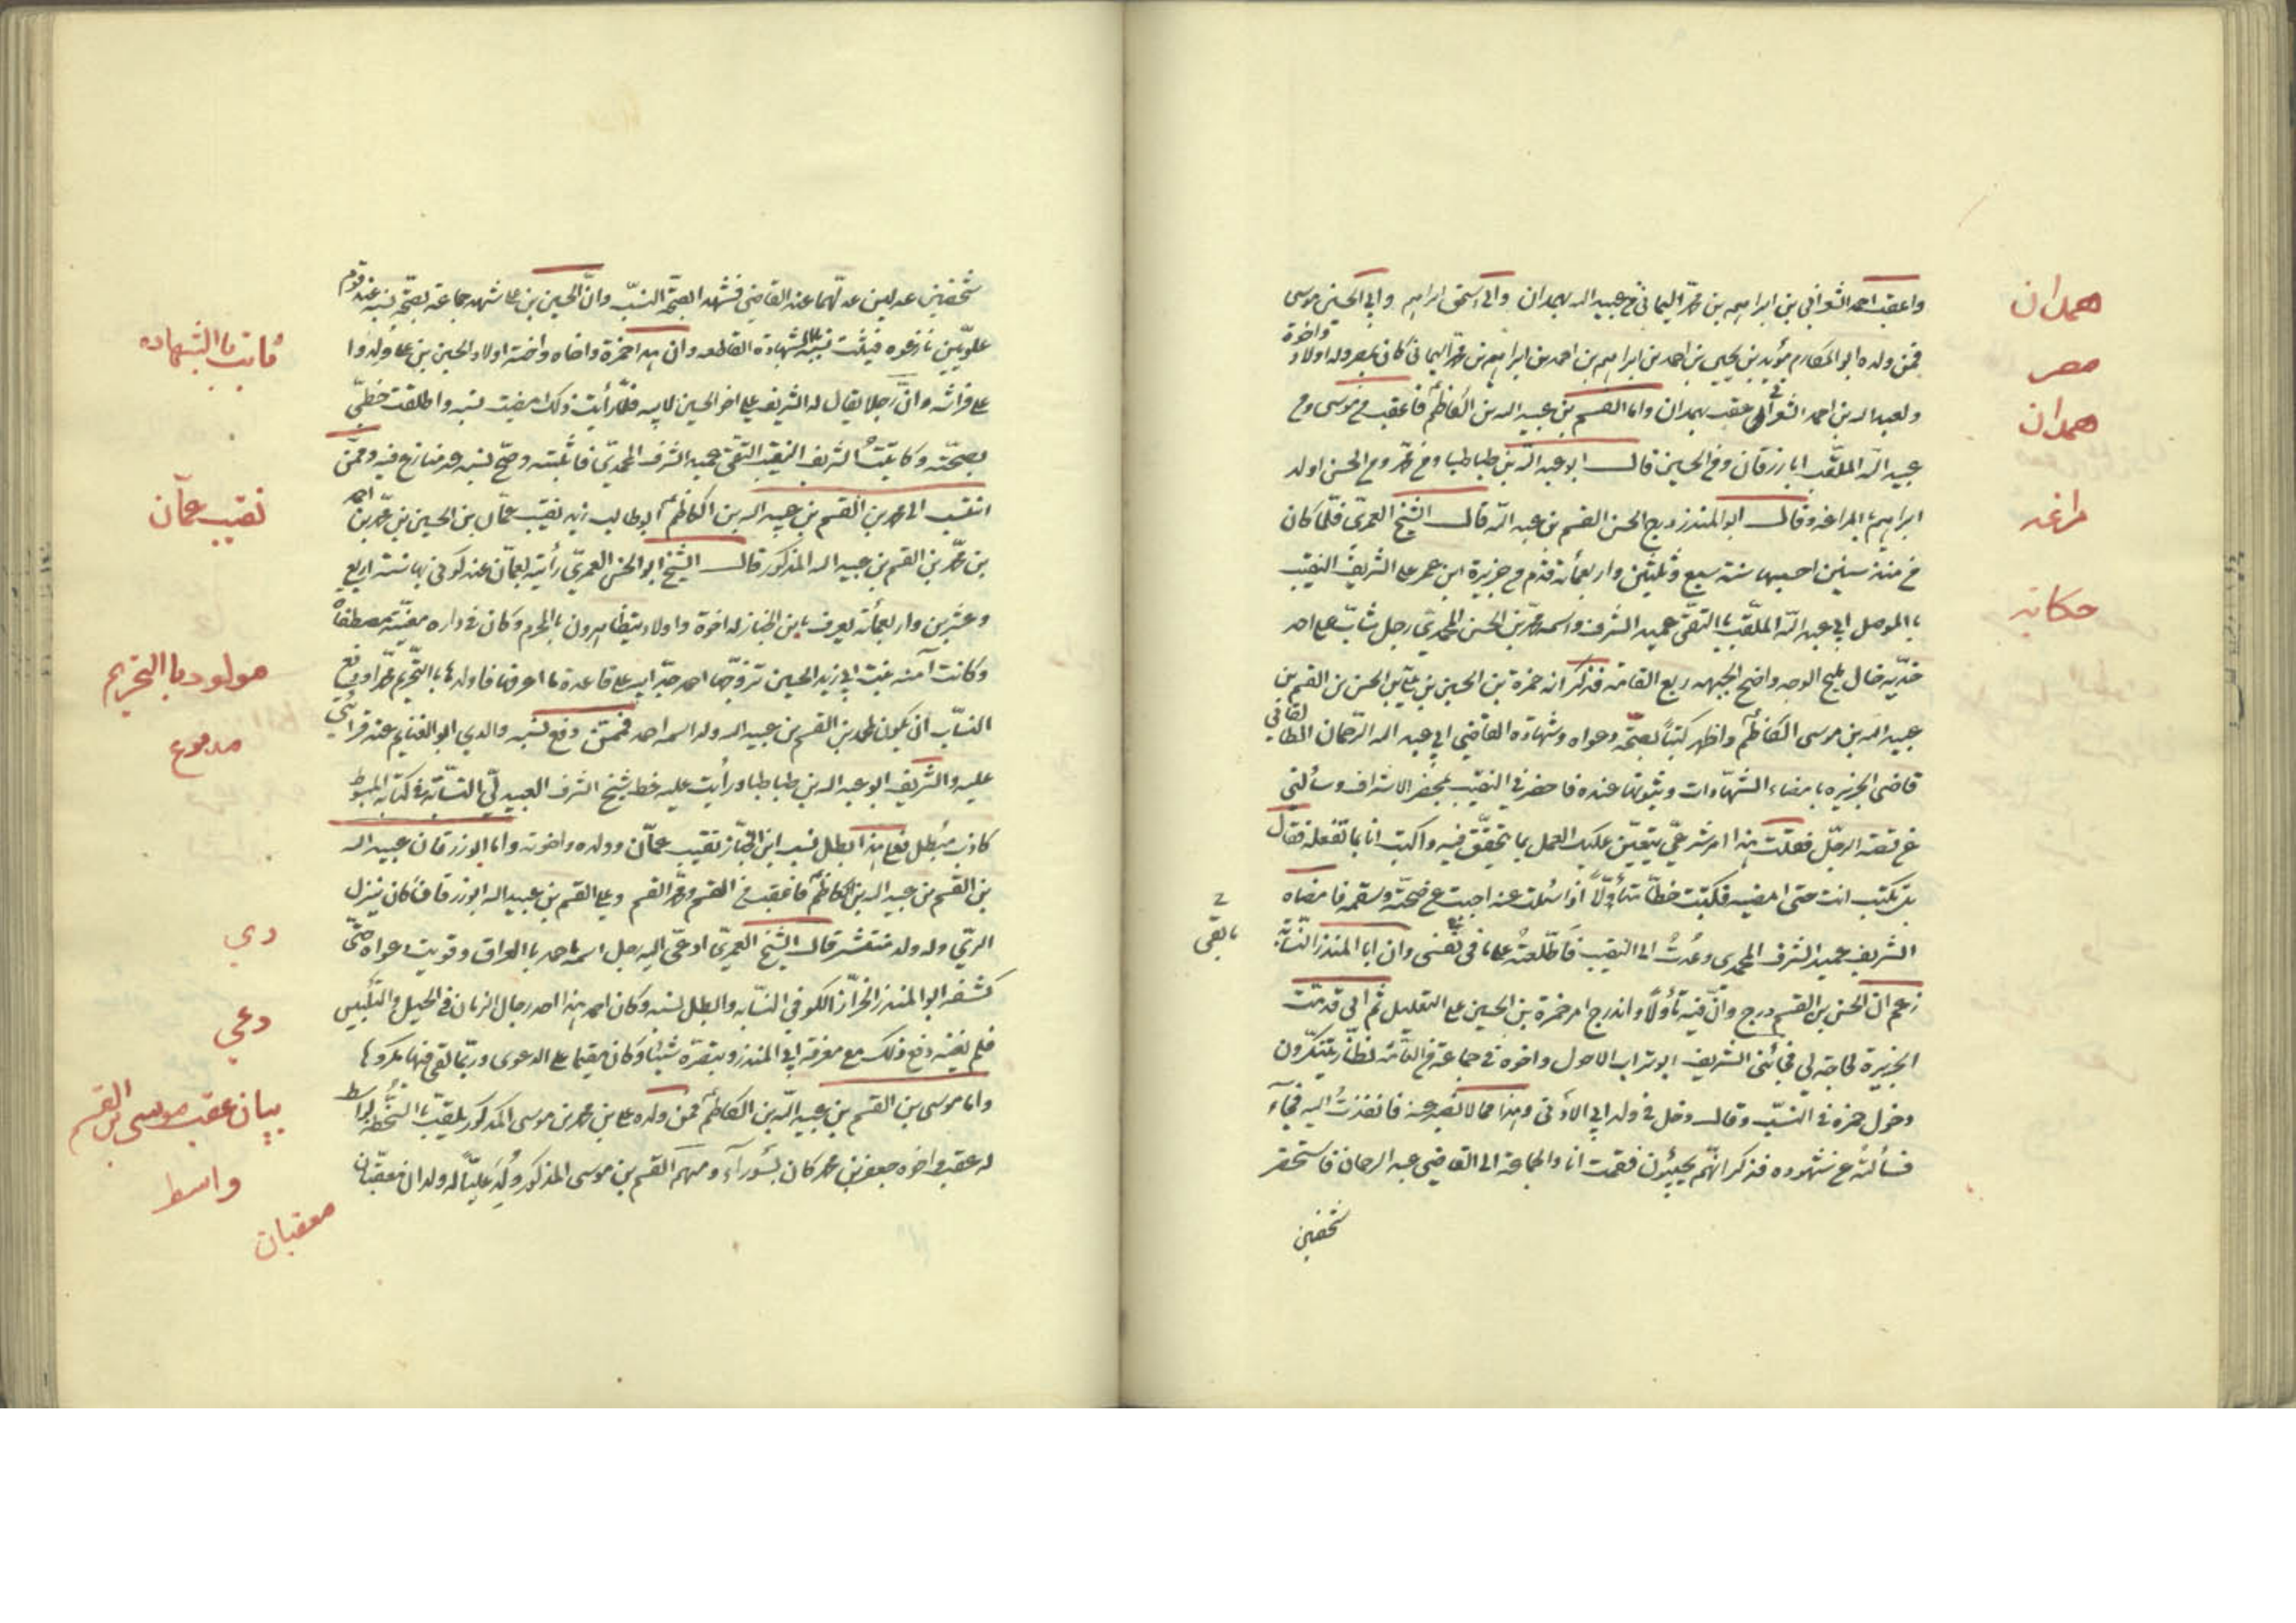 واعقب احمد الشعراني بن ابراهيم بن محمد اليماني في عبيد الله بهمدان وابي اسحق ابراهيم وابي الحسين موسى
فمن ولده ابو المكارم مؤيد بن يحيى بن احمد بن ابراهيم بن احمد بن ابراهيم بن محمد اليماني كان بمصر وله اولاد واخوة
ولعبد الله بن احمد الشعراني عقب بهمدان واما القسم بن عبيد الله بن الكاظم فاعقب من موسى ومن
عبيد الله الملقب ابا زرقان ومن الحسين قال ابو عبد الله بن طباطبا ومن محمد ومن الحسن اولد
ابراهيم بالمراغه وقال ابو المنذر درج الحسن القسم بن عبد الله قال الشيخ العمري فلما كان
من سنين احسبها سنة سبع وثلثين واربعمأة قدم من جزيرة ابن عمر على الشريف النقيب
بالموصل ابي عبد الله الملقب بالتقي عميد الشرف واسمه محمد بن الحسن المحمدي رجل شاب على احد
خديه خال مليح الوجه واضح الجبهه ربع القامه فذكر انه حمزة بن الحسين بن علي بن الحسن بن القسم بن
عبيد الله بن موسى الكاظم واظهر كتبا بصحة دعواه وشهادة القاضي ابي عبد الله الرحمان الطالقاني
قاضي الجزيره بامضاء الشهادات وثبوتها عنده فاحضرني النقيب بمحضر الاشراف وسألني
عن قصة الرجل فقلت هذا امر شرعي يتعين عليك العمل بما تحقق فيه واكتب انا بما تفعله فقال
بل تكتب انت حتى امضيه فكتبت خطا متأولا اذا سئلت عنه اجبت عن صحته وسقمه فامضاه
الشريف عميد الشرف المحمدي وعدت الى النقيب فاطلعته على ما في نفسي وان ابا المنذر النسابة
زعم ان الحسن بن القسم درج وان فيه تأولا واندرج امر حمزة بن الحسين على التعليل ثم اني قدمت
الجزيرة لحاجة لي فجائني الشريف ابو تراب الاحول واخوه في جماعة من العامه نظار يتنكرون
دخول حمزه في النسب وقال دخل في ولد ابي الادنى وهذا مما لا نصبر عنه فانفذت اليه فجآء
فسألته عن شهوده فذكر انهم يجيئون فقمت انا والجماعة الى القاضي عبد الرحمان فاستحضر
شخصين
همدان
مصر
همدان
مراغه
حكايه
شخصين عدلين عدلهما عند القاضي فشهدا بصحة النسب وان الحسين بن علي شهد جماعة بصحة نسبه عند قوم
علويين نازعوه فيثبت نسبه بالشهادة القاطعه وان هذا حمزة واخاه واخته اولاد الحسين بن علي ولدوا
على فراشه وان رجلا يقال له الشريف علي اخو الحسين لابيه فلما رأيت ذلك امضيت نسبه واطلقت خطي
بصحته وكاتبت الشريف النقيب التقي عميد الشرف المحمدي فاثبته وصح نسبه عند منازع فيه وممن
انتسب الى محمد بن القسم بن عبيد الله بن الكاظم ابو طالب زيد نقيب عمان بن الحسين بن محمد بن احمد
بن محمد بن القسم بن عبيد الله المذكور قال الشيخ ابو الحسن العمري رأيته بعمان عند كوني بها سنة اربع
وعشرين واربعمأته يعرف بابن الخباز له اخوة واولاد يتظاهرون بالمحرم وكان في داره مغنية مصطفاة
وكانت آمنه بنت ابي زيد الحسين تزوجها احمد جد ابيه على قاعدة ما اعرفها فاولدها بالتحريم محمدا ودفع
النساب ان يكون لمحمد بن القسم بن عبيد الله ولد اسمه احمد فممن دفع نسبه والدي ابو الغنايم عند قراءتي
عليه والشريف ابو عبد الله بن طباطبا ورأيت عليه خط شيخ الشرف العبيدلي النسابة في كتابه المبسوط
كاذب مبطل فعلى هذا ابطل نسب ابن الخباز نقيب عمان وولده واخوته واما ابو زرقان عبيد الله
بن القسم بن عبيد الله بن الكاظم فاعقب من القسم ومحمد القسم وعلي القسم بن عبيد الله ابو زرقان كان ينزل
الري وله ولد منتشر قال الشيخ العمري ادعى اليه رجل اسمه احمد بالعراق وقويت دعواه حتى
كشفه ابو المنذر الخزاز الكوفي النسابه وابطل نسبه وكان احمد هذا احد رجال الزمان في الحيل والتلبيس
فلم يغنه ذلك مع معرفة ابي المنذر وبتقره شيئا وكان مقيما على الدعوى وربما لقي فيها مكروها
واما موسى بن القسم بن عبيد الله بن الكاظم فمن ولده علي بن محمد بن موسى المذكور يلقب بواسط
له عقب واخوه جعفر بن محمد كان بسوراء ومنهم القسم بن موسى المذكور ولد عليا له ولدان معقبان
ثابت بالشهاده
نقيب عمان
مولود بالتحريم
مدفوع
ري
دعي
بيان عقب موسى بن القسم
واسط
معقبان